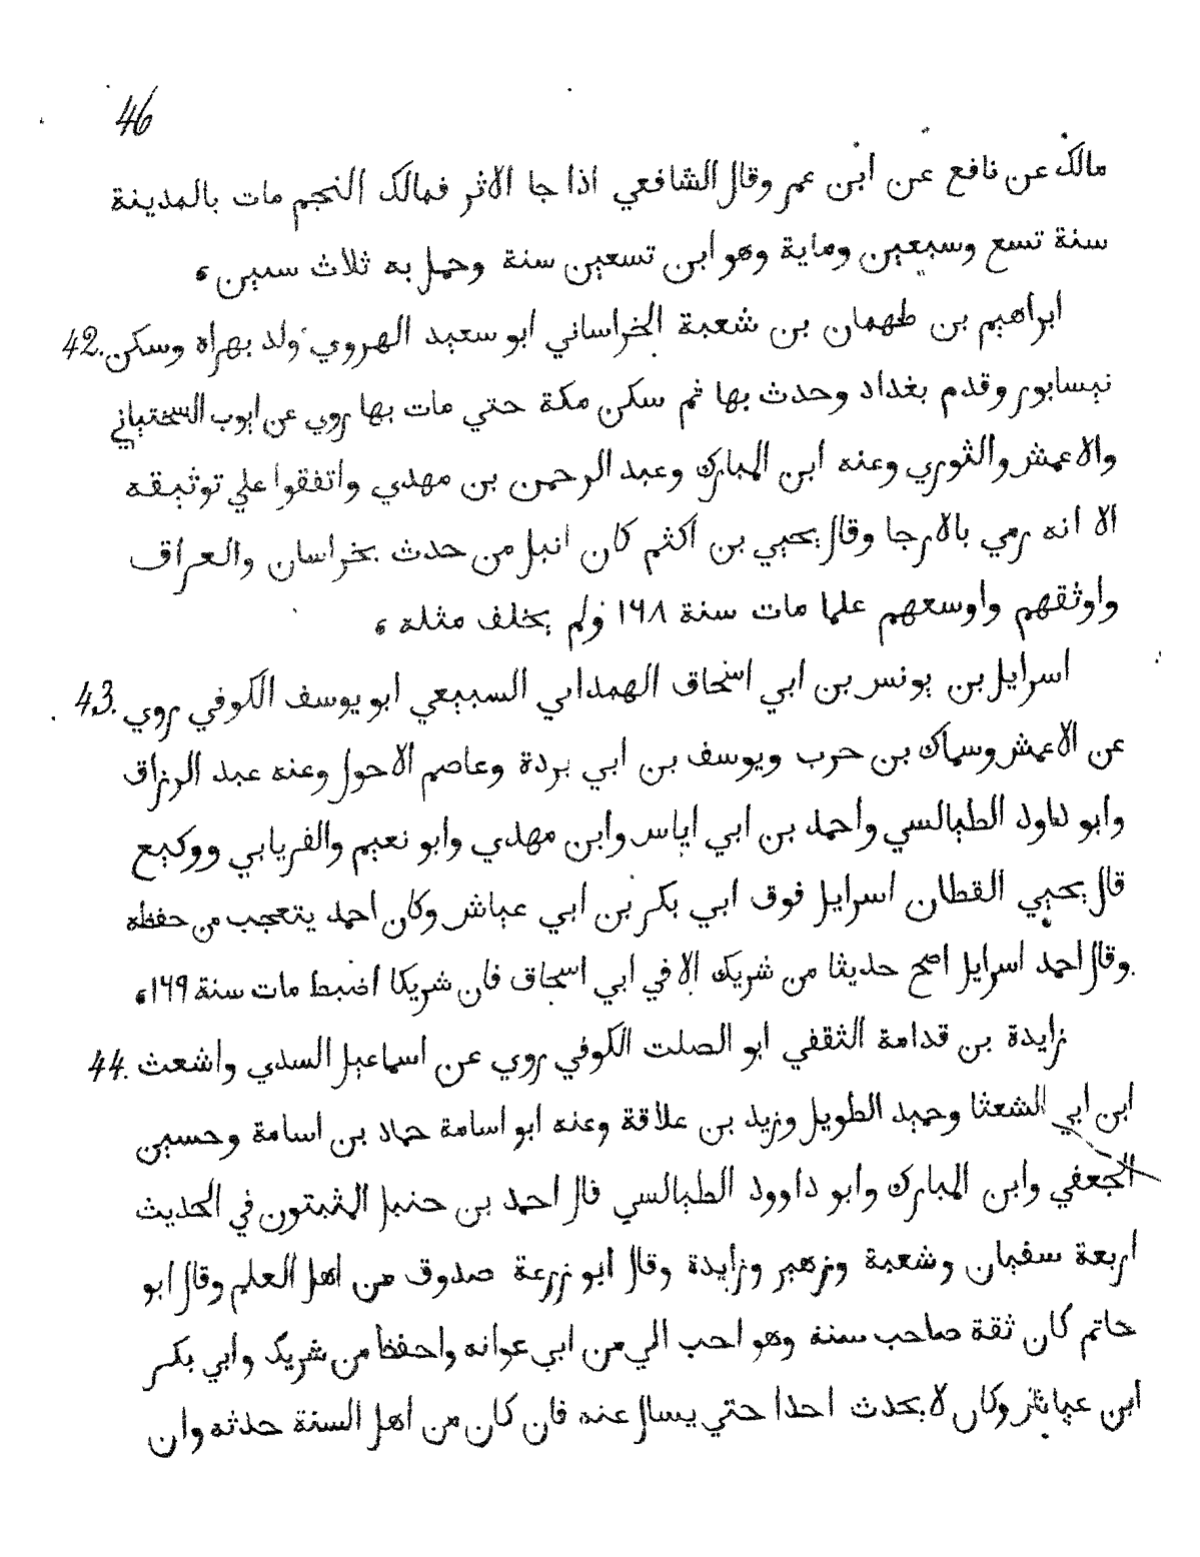 46
مالك عن نافع عن ابن عمر وقال الشافعي اذا جا الاثر فمالك النجم مات بالمدينة
سنة تسع وسبعين وماية وهو ابن تسعين سنة وحمل به ثلاث سنين ،
42. ابراهيم بن طهمان بن شعبة الخراساني ابو سعيد الهروي ولد بهراه وسكن
نيسابور وقدم بغداد وحدث بها ثم سكن مكة حتي مات بها روي عن ايوب السختياني
والاعمش والثوري وعنه ابن المبارك وعبد الرحمن بن مهدي واتفقوا علي توثيقه
الا انه رمي بالارجا وقال يحيي بن اكثم كان انبل من حدث بخراسان والعراق
واوثقهم واوسعهم علما مات سنة ١٦٨ ولم يخلف مثله ،
43. اسرايل بن يونس بن ابي اسحاق الهمداني السبيعي ابو يوسف الكوفي روي
عن الاعمش وسماك بن حرب ويوسف بن ابي بردة وعاصم الاحول وعنه عبد الرزاق
وابو داود الطيالسي واحمد بن ابي اياس وابن مهدي وابو نعيم والفريابي ووكيع
قال يحيي القطان اسرايل فوق ابي بكر بن ابي عياش وكان احمد يتعجب من حفظه
وقال احمد اسرايل اصح حديثا من شريك الا في ابي اسحاق فان شريكا اضبط مات سنة ١٦٩ ،
44. زايدة بن قدامة الثقفي ابو الصلت الكوفي روي عن اسماعيل السدي واشعث
ابن ابي الشعثا وحميد الطويل وزيد بن علاقة وعنه ابو اسامة حماد بن اسامة وحسين
الجعفي وابن المبارك وابو داوود الطيالسي قال احمد بن حنبل المثبتون في الحديث
اربعة سفيان وشعبة وزهير وزايدة وقال ابو زرعة صدوق من اهل العلم وقال ابو
حاتم كان ثقة صاحب سنة وهو احب الي من ابي عوانه واحفظ من شريك وابي بكر
ابن عياش وكان لا يحدث احدا حتي يسال عنه فان كان من اهل السنة حدثه وان